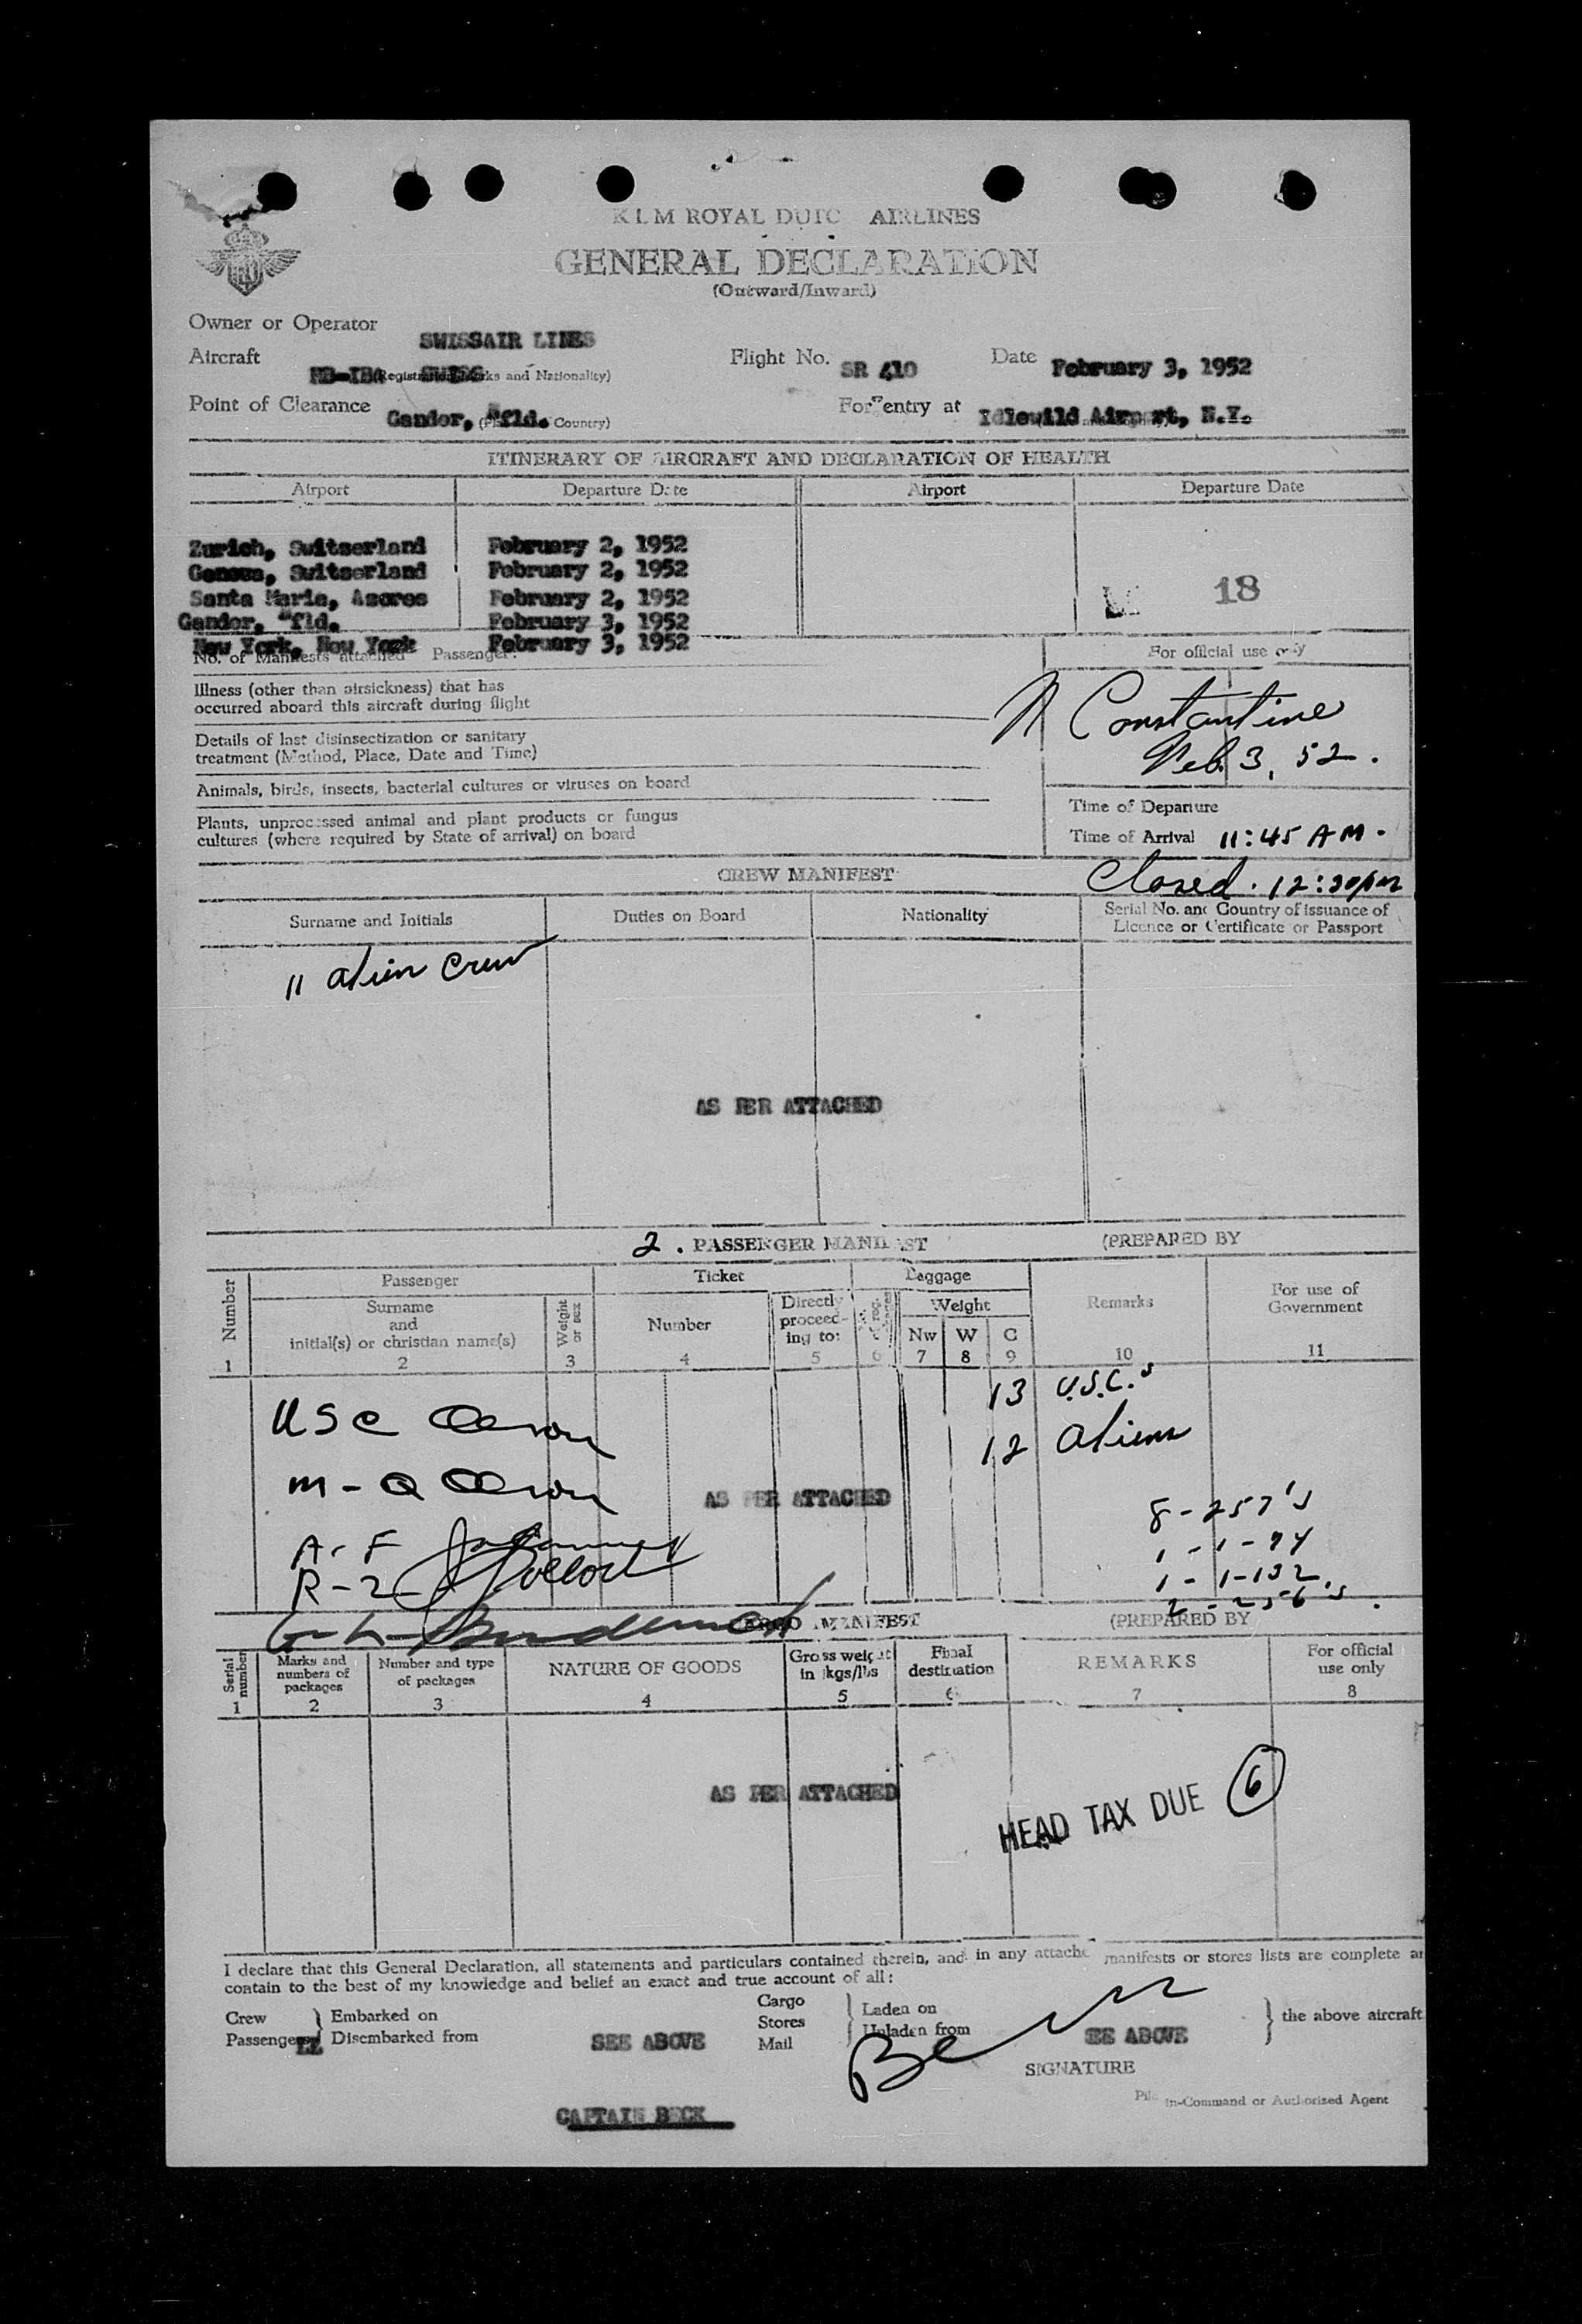 KLM ROYAL DUTC AIRLINES
GENERAL DECLARATION
(Outward/Inward)
Owner or Operator SWISSAIR LINES
Aircraft SWISS (Registration Marks and Nationality) Flight No. SR 410 Date February 3, 1952
Point of Clearance Gander, Nfld. Country) For entry at Idlewild Airport, N.Y.
ITINERARY OF AIRCRAFT AND DECLARATION OF HEALTH
Airport Departure Date Airport Departure Date
Zurich, Switzerland February 2, 1952
Geneva, Switzerland February 2, 1952
Santa Maria, Azores February 2, 1952
18
Gander, Nfld. February 3, 1952
New York, New York February 3, 1952
No. of Manifests attached Passenger: For official use only
Illness (other than airsickness) that has
occurred aboard this aircraft during flight
N Constantine
Feb. 3, 52.
Details of last disinsectization or sanitary
treatment (Method, Place, Date and Time)
Animals, birds, insects, bacterial cultures or viruses on board
Plants, unprocessed animal and plant products or fungus
cultures (where required by State of arrival) on board
Time of Departure
Time of Arrival 11:45 AM.
CREW MANIFEST Closed. 12:30pm
Surname and Initials Duties on Board Nationality Serial No. and Country of issuance of
Licence or Certificate or Passport
11 alien crew
AS PER ATTACHED
2. PASSENGER MANIFEST (PREPARED BY
Number Passenger Ticket Baggage Remarks For use of
Government
Surname
and
initial(s) or christian name(s)
Weight
or sex
Number
Directly
proceed-
ing to:
Weight
Nw W C
1 2 3 4 5 6 7 8 9 10 11
13 U.S.C.'s
USC
12 aliens
M - Q
AS PER ATTACHED
8 - 257's
A - F
1 - 1-94
R - 2
1 - 1-132
2 - 256's.
CARGO MANIFEST (PREPARED BY
Serial
number
Marks and
numbers of
packages
Number and type
of packages
NATURE OF GOODS
Gross weight
in kgs/lbs
Final
destination
REMARKS
For official
use only
1 2 3 4 5 6 7 8
AS PER ATTACHED
HEAD TAX DUE 6
I declare that this General Declaration, all statements and particulars contained therein, and in any attache manifests or stores lists are complete an
contain to the best of my knowledge and belief an exact and true account of all:
Crew
Passengers
Embarked on
Disembarked from
SEE ABOVE
Cargo
Stores
Mail
Laden on
Unladen from
SEE ABOVE
the above aircraft
SIGNATURE
In-Command or Authorized Agent
CAPTAIN BECK